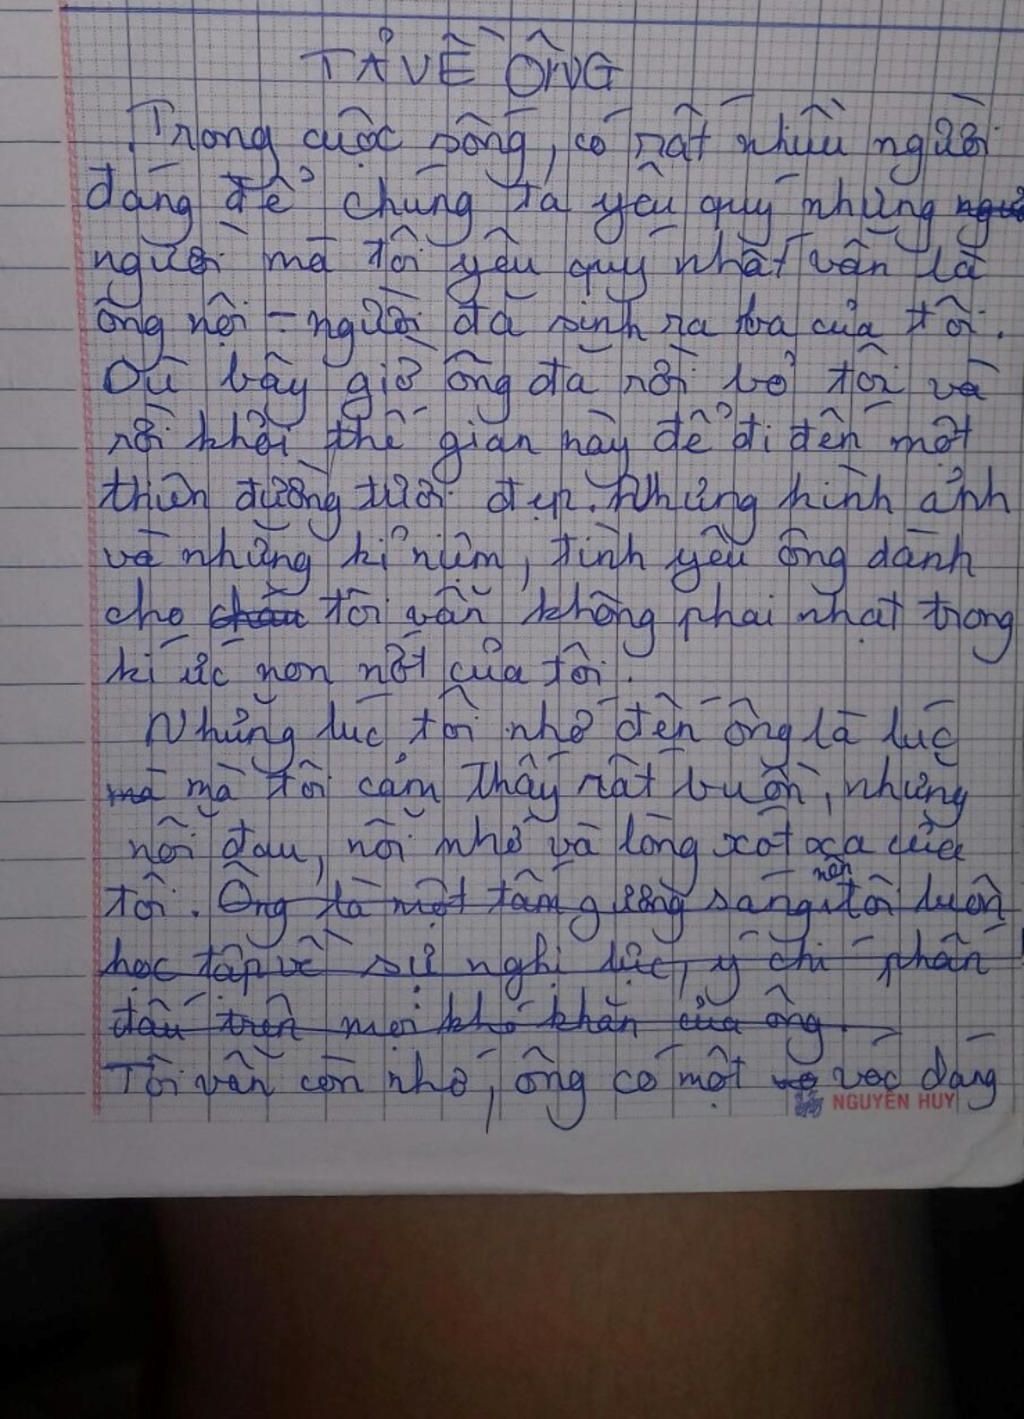 TẢ VỀ ÔNG
Trong cuộc sống, có rất nhiều người
đáng để chúng ta yêu quý những
người mà tôi yêu quý nhất vẫn là
ông nội - người đã sinh ra ba của tôi.
Dù bây giờ ông đã rời bỏ tôi và
rời khỏi thế gian này để đi đến một
thiên đường tươi đẹp. Những hình ảnh
và những kỉ niệm, tình yêu ông dành
cho cháu tôi vẫn không phai nhạt trong
kí ức non nớt của tôi.
Những lúc tôi nhớ đến ông là lúc
mà mà tôi cảm thấy rất buồn, những
nỗi đau, nỗi nhớ và lòng xót xa của
tôi. Ông là một tấm gương sáng nên tôi luôn
học tập về sự nghị lực, ý chí phấn
đấu trên mọi khó khăn của ông.
Tôi vẫn còn nhớ, ông có một vóc dáng
NGUYÊN HUY